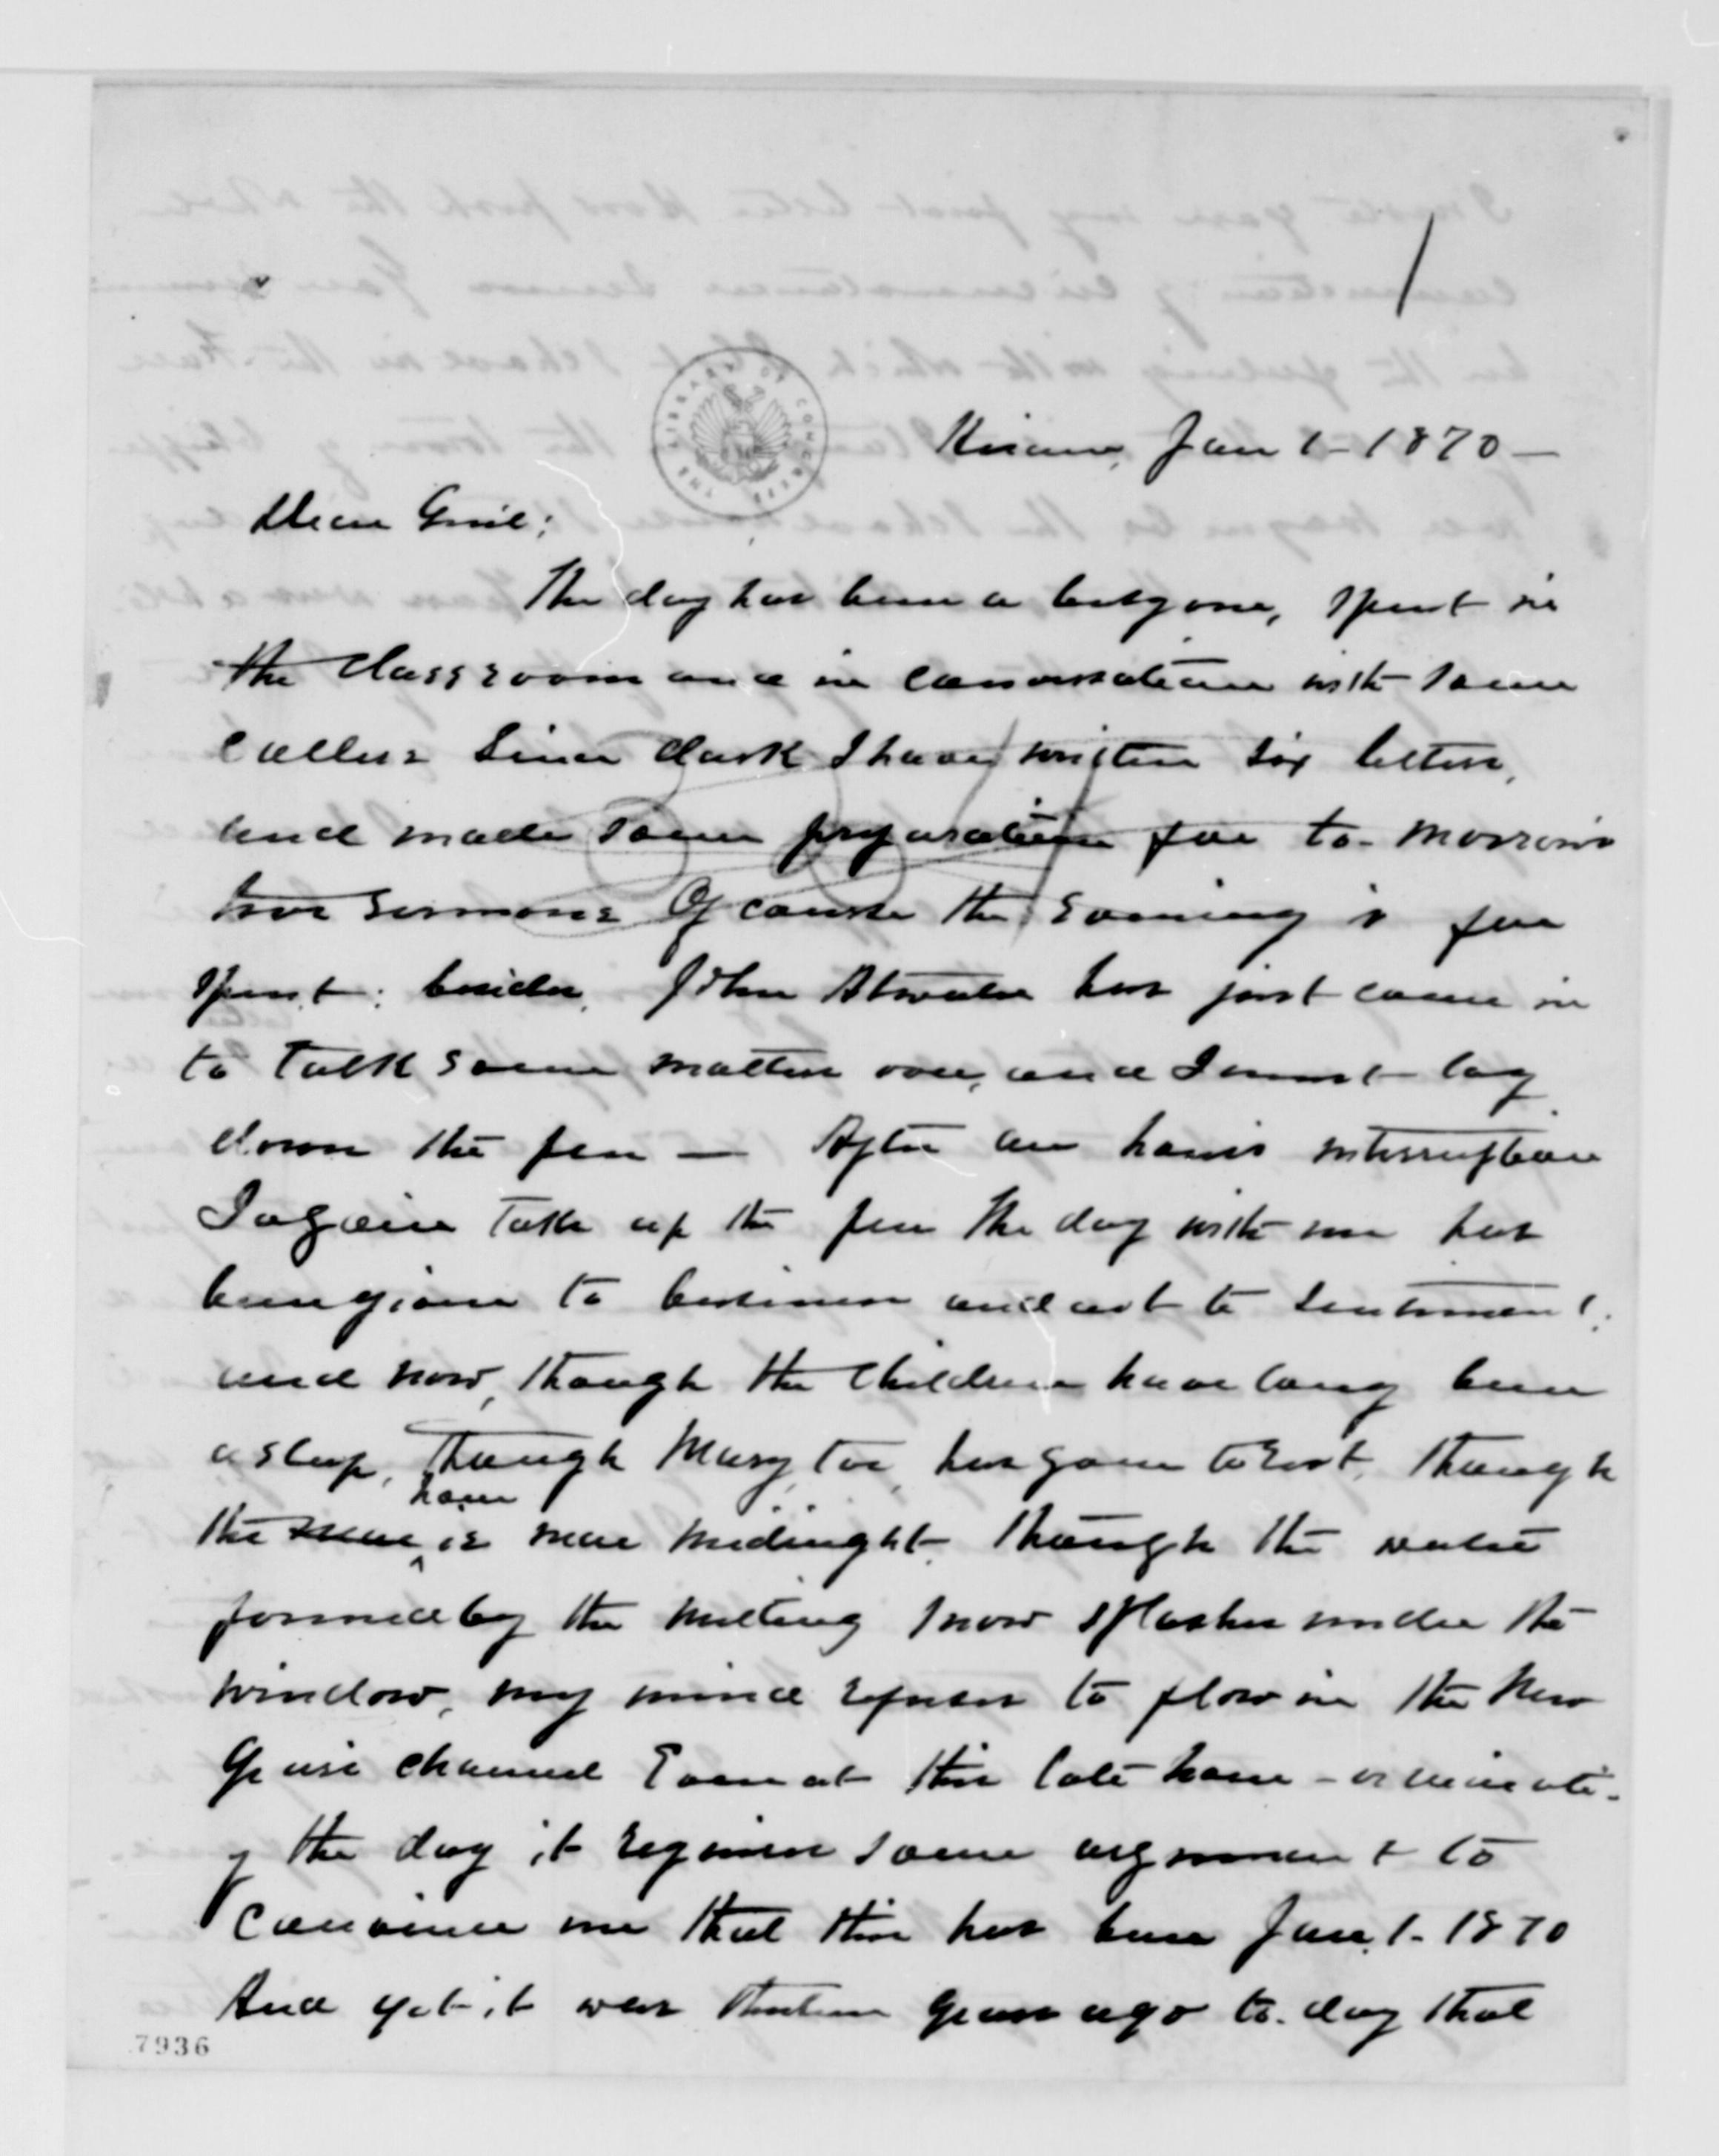 THE LIBRARY OF CONGRESS
Hiram, Jan 1 - 1870 —
Dear Gen'l:
The day has been a busy one, spent in
the class room and in conversation with some
callers Since dark I have written six letters,
and made some preparation for to-morrow's
two sermons Of course the evening is far
spent; besides, John Atwater has just come in
to talk some matters over, and I must lay
down the pen — After an hour's interruption
I again take up the pen The day with me has
been given to business and not to sentiment;
and now, though the children have long been
asleep, though Mary, too, has gone to rest, though
the hour is near midnight though the water
formed by the melting snow splashes under the
window, my mind refuses to flow in the New
Year channel Even at this late hour - or minute -
of the day it requires some argument to
convince me that this has been Jan. 1 - 1870
And yet it was thirteen years ago to-day that
7936